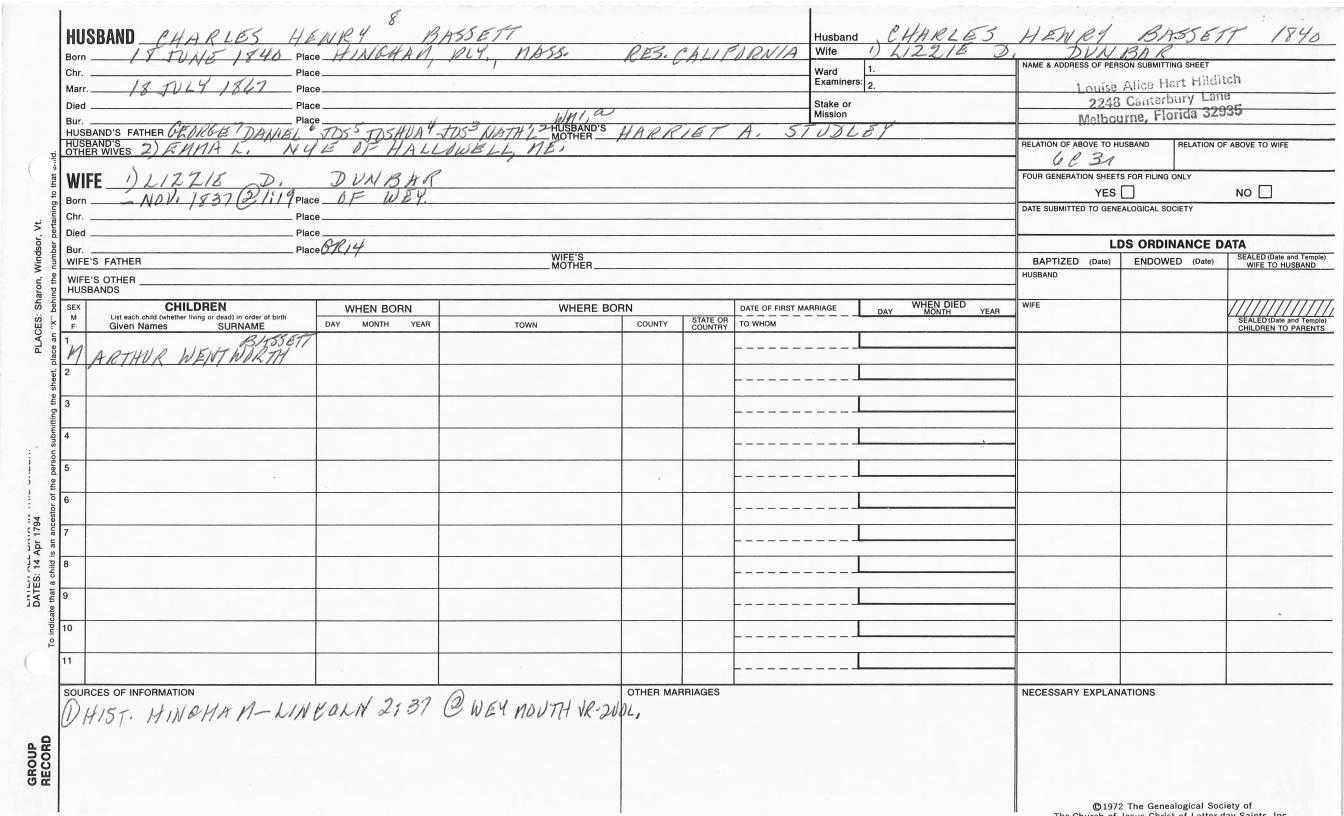 8
HUSBAND CHARLES HENRY BASSETT
Born 18 JUNE 1840 Place HINGHAM, PLY., MASS. RES. CALIFORNIA
Chr. Place
Marr. 18 JULY 1867 Place
Died Place
Bur. Place
WM1,a
HUSBAND'S FATHER GEORGE7 DANIEL6 JOS5 JOSHUA4 JOS3 NATH'L2 HUSBAND'S MOTHER HARRIET A. STUDLEY
HUSBAND'S OTHER WIVES 2) EMMA L. NYE OF HALLOWELL, ME.
WIFE 1) LIZZIE D. DUNBAR
Born – NOV. 1837 ② 1:19 Place OF WEY.
Chr. Place
Died Place
Bur. Place GR14
WIFE'S FATHER WIFE'S MOTHER
WIFE'S OTHER HUSBANDS
Husband CHARLES HENRY BASSETT 1840
Wife 1) LIZZIE D. DUNBAR
Ward Examiners: 1.
2.
Stake or Mission
NAME & ADDRESS OF PERSON SUBMITTING SHEET
Louise Alice Hart Hilditch
2248 Canterbury Lane
Melbourne, Florida 32935
RELATION OF ABOVE TO HUSBAND RELATION OF ABOVE TO WIFE
6C3R
FOUR GENERATION SHEETS FOR FILING ONLY
YES NO
DATE SUBMITTED TO GENEALOGICAL SOCIETY
LDS ORDINANCE DATA
BAPTIZED (Date) ENDOWED (Date) SEALED (Date and Temple) WIFE TO HUSBAND
HUSBAND
WIFE
SEALED (Date and Temple) CHILDREN TO PARENTS
SEX M F
CHILDREN
List each child (whether living or dead) in order of birth
Given Names SURNAME
WHEN BORN
DAY MONTH YEAR
WHERE BORN
TOWN COUNTY STATE OR COUNTRY
DATE OF FIRST MARRIAGE
TO WHOM
WHEN DIED
DAY MONTH YEAR
1 BASSETT
M ARTHUR WENTWORTH
2
3
4
5
6
7
8
9
10
11
SOURCES OF INFORMATION
① HIST. HINGHAM – LINCOLN 2:37 ② WEYMOUTH VR-2VOL.
OTHER MARRIAGES
NECESSARY EXPLANATIONS
©1972 The Genealogical Society of
The Church of Jesus Christ of Latter-day Saints, Inc.
PLACES: Sharon, Windsor, Vt.
DATES: 14 Apr 1794
To indicate that a child is an ancestor of the person submitting the sheet, place an "X" behind the number pertaining to that child.
GROUP RECORD